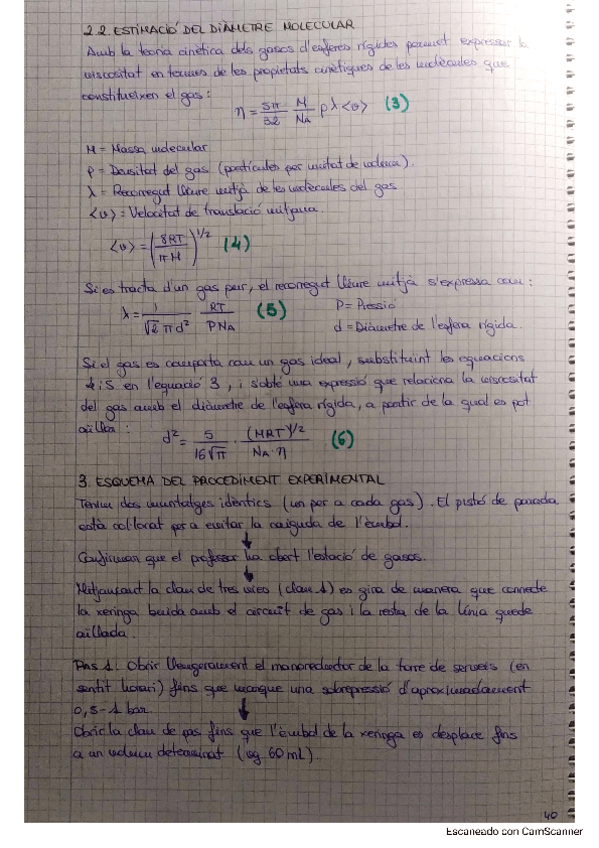 2.2. ESTIMACIÓ DEL DIÀMETRE MOLECULAR
Amb la teoria cinètica dels gasos d'esferes rígides permet expressar la
viscositat en termes de les propietats cinètiques de les molècules que
constitueixen el gas:
η = 5π/32 M/NA ρ λ <υ> (3)
M = Massa molecular
ρ = Densitat del gas (partícules per unitat de volum).
λ = Recorregut lliure mitjà de les molècules del gas
<υ> = Velocitat de translació mitjana.
<υ> = (8RT/πM)^1/2 (4)
Si es tracta d'un gas pur, el recorregut lliure mitjà s'expressa com:
λ = 1/(√2 π d²) RT/PNA (5) P = Pressió
d = Diàmetre de l'esfera rígida.
Si el gas es comporta com un gas ideal, substituint les equacions
4 i 5 en l'equació 3, i s'obté una expressió que relaciona la viscositat
del gas amb el diàmetre de l'esfera rígida, a partir de la qual es pot
aïllar:
d² = 5/(16√π) · (MRT)^1/2/(NA · η) (6)
3. ESQUEMA DEL PROCEDIMENT EXPERIMENTAL
Tenim dos muntatges idèntics (un per a cada gas). El pistó de parada
està col·locat per a evitar la caiguda de l'èmbol.
↓
Confirmam que el professor ha obert l'estació de gasos.
↓
Mitjançant la clau de tres vies (clau 1) es gira de manera que connecte
la xeringa buida amb el circuit de gas i la resta de la línia quede
aïllada.
Pas 1: Obrir lleugerament el manoreductor de la torre de serveis (en
sentit horari) fins que marque una sobrepressió d'aproximadament
0,5-1 bar.
↓
Obrir la clau de pas fins que l'èmbol de la xeringa es desplace fins
a un volum determinat (eg. 60 mL).
40
Escaneado con CamScanner